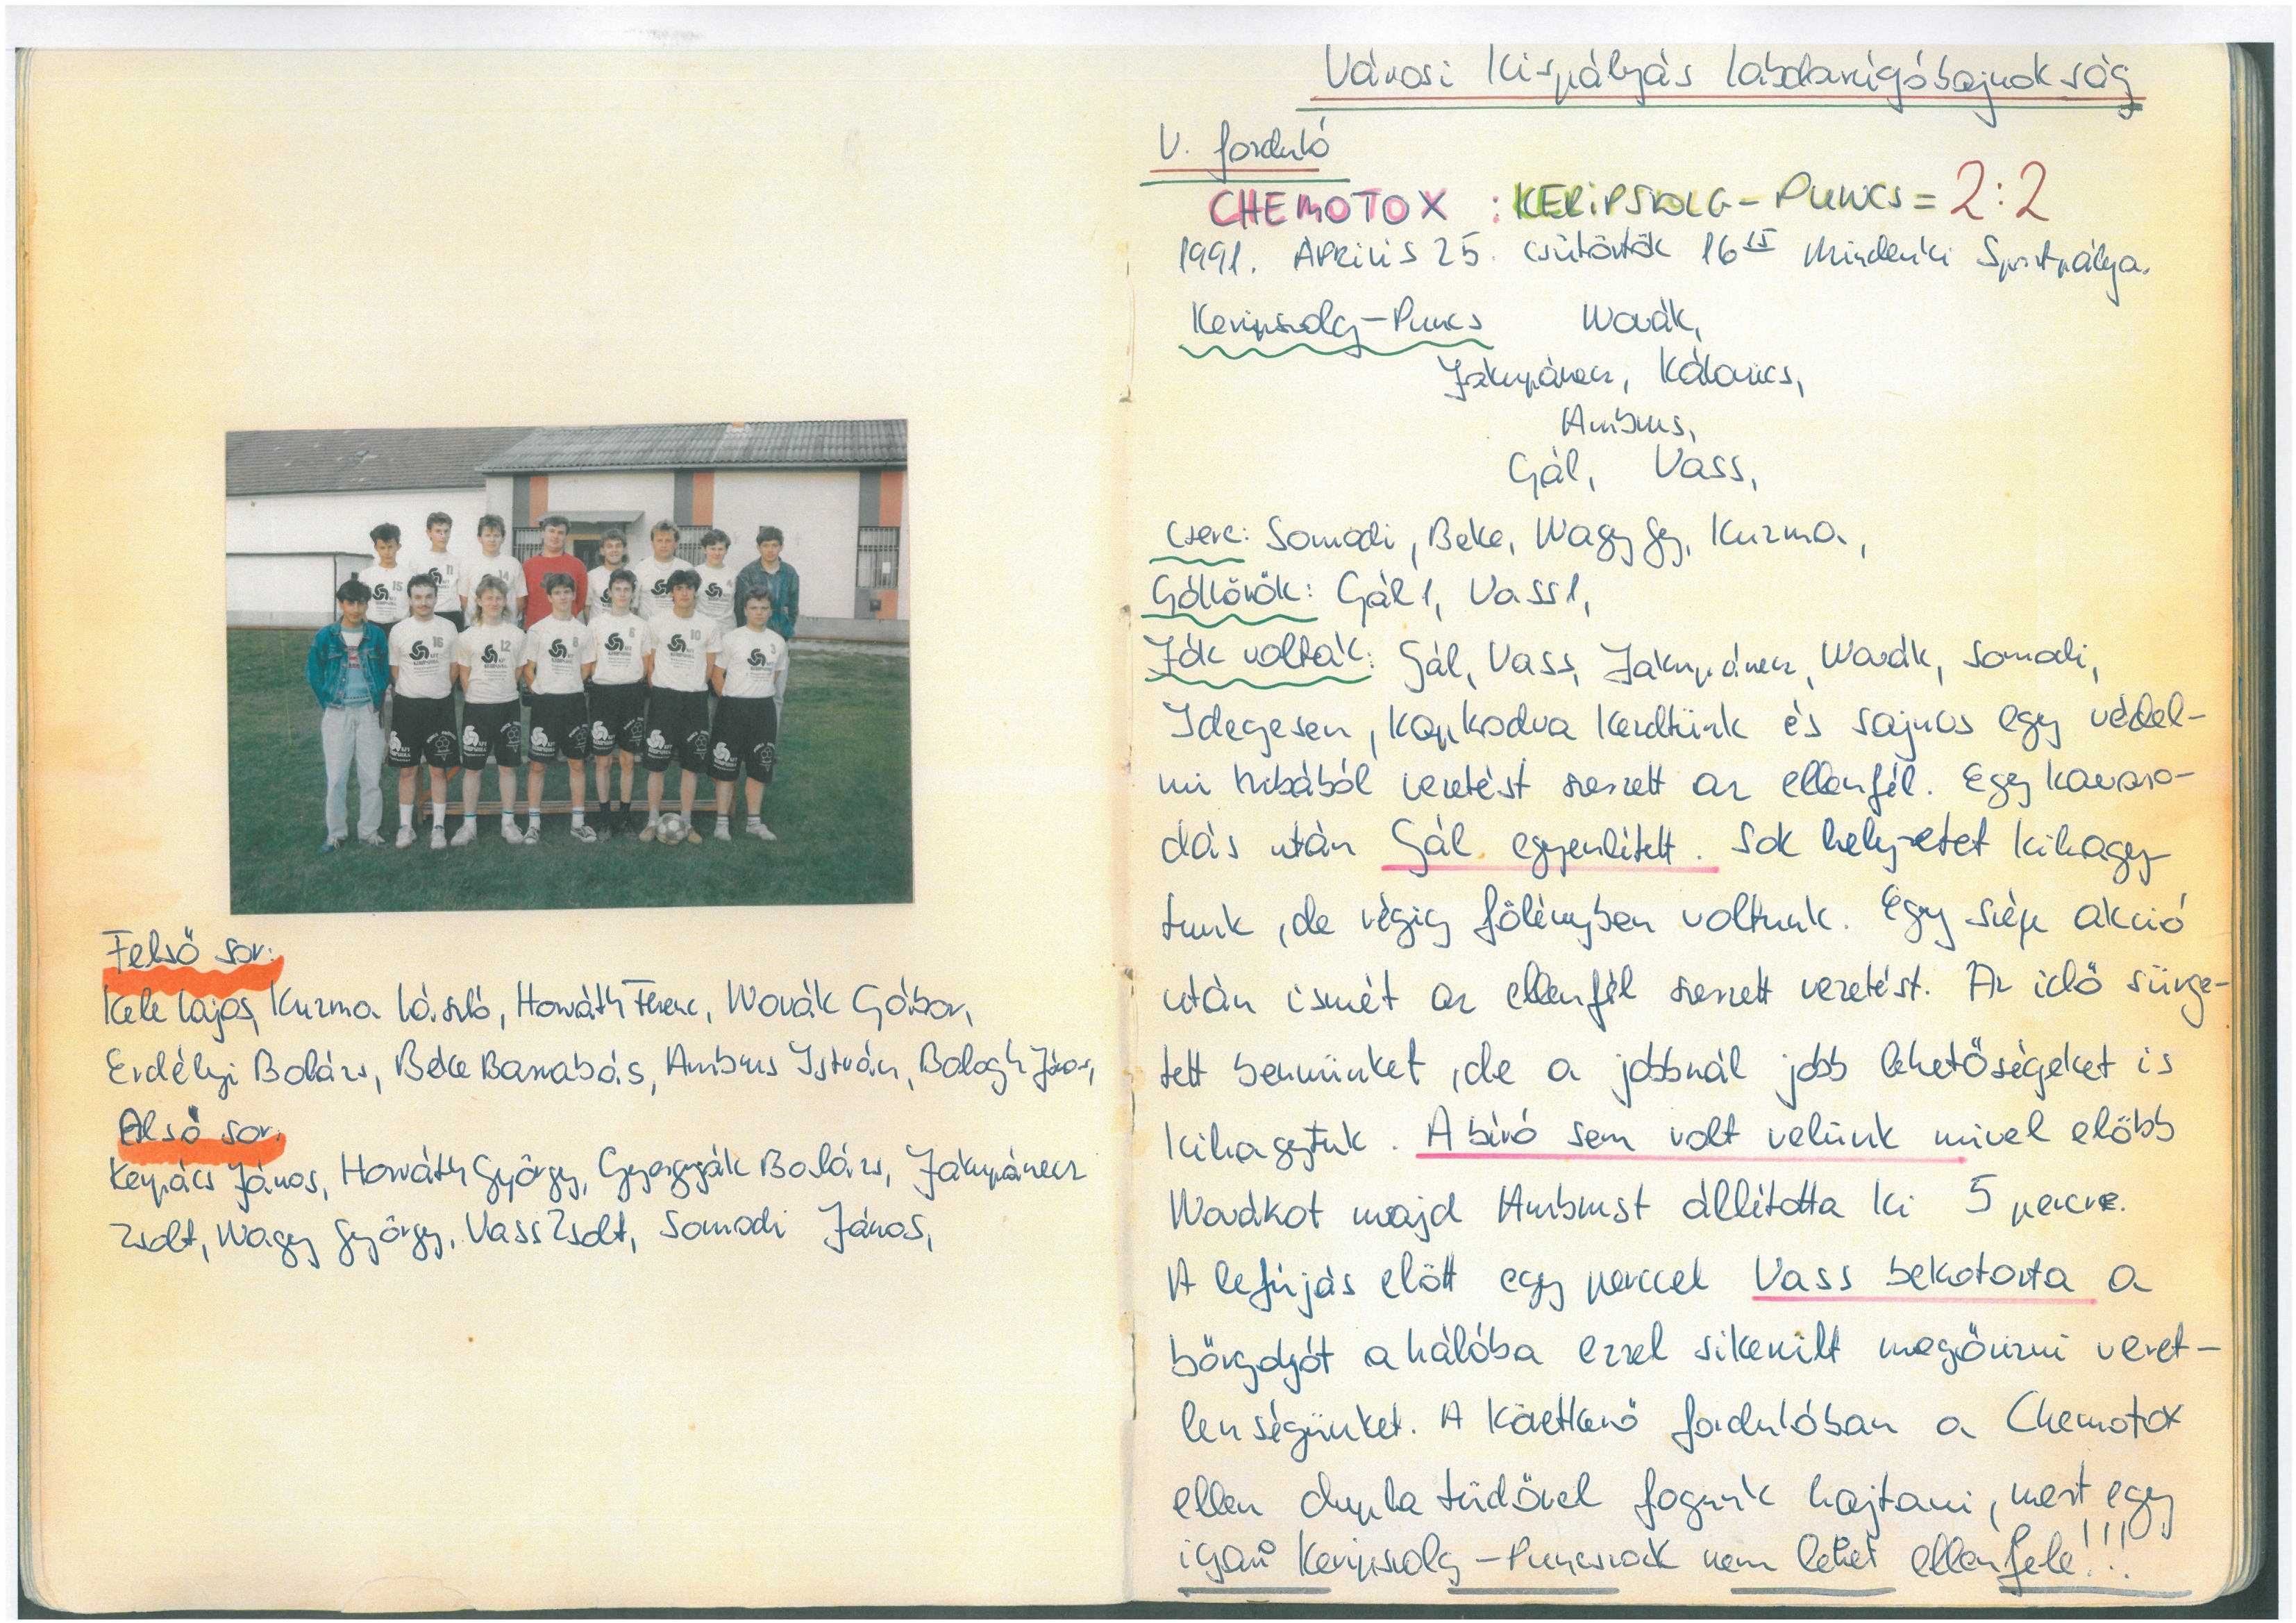 Felső sor:
Kele Lajos, Kuzma László, Horváth Ferenc, Novák Gábor,
Erdélyi Balázs, Beke Barnabás, Ambrus István, Balogh János,
Alsó sor:
Kenyács János, Horváth György, Gyorgyák Balázs, Jákupánecz
Zsolt, Nagy György, Vass Zsolt, Somodi János,
Városi Kispályás labdarúgóbajnokság
V. forduló
CHEMOTOX : KERIPSZOLG - PUNCS = 2:2
1991. ÁPRILIS 25. csütörtök 16 15 Mindenki Sportpálya.
Keripszolg-Puncs Novák,
Jákupánecz, Kálovics,
Ambrus,
Gál, Vass,
csere: Somodi, Beke, Nagy Gy, Kuzma,
Góllövők: Gál 1, Vass 1,
Jók voltak: Gál, Vass, Jákupánecz, Novák, Somodi,
Idegesen, kapkodva kezdtünk és sajnos egy védel-
mi hibából vezetést szerzett az ellenfél. Egy kavaro-
dás után Gál egyenlített. Sok helyzetet kihagy-
tunk, de végig fölényben voltunk. Egy szép akció
után ismét az ellenfél szerzett vezetést. Az idő sürge-
tett bennünket, de a jobbnál jobb lehetőségeket is
kihagytuk. A bíró sem volt velünk mivel előbb
Novákot majd Ambrust állította ki 5 percre.
A lefújás előtt egy perccel Vass bekotorta a
bőrgolyót a hálóba ezzel sikerült megőrizni veret-
lenségünket. A következő fordulóban a Chemotox
ellen dupla tüdővel fogunk hajtani, mert egy
igazi Keripszolg-Puncsnak nem lehet ellenfele!!!